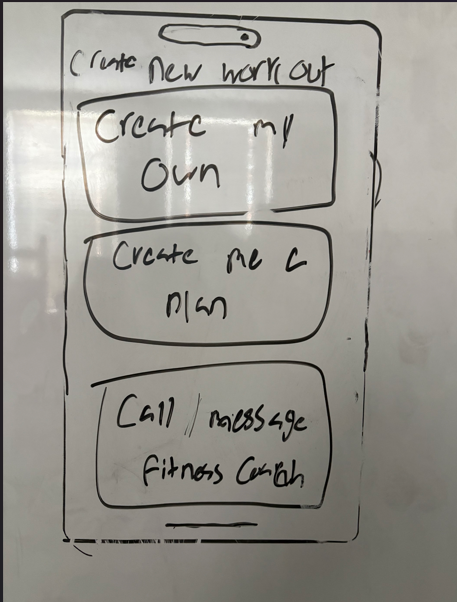 Create new workout
Create my
Own
Create me a
plan
Call / message
fitness Coach